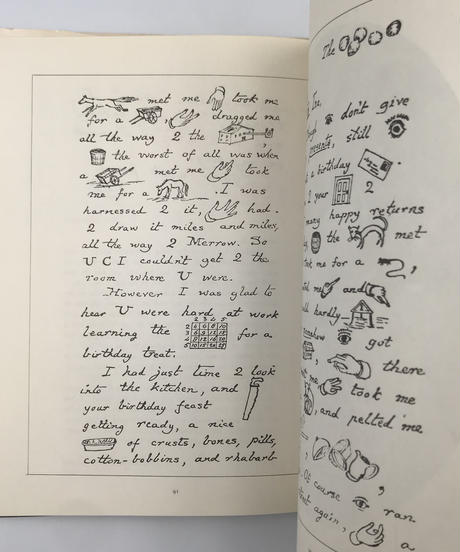 met me took me
for a , dragged me
all the way 2 the ,
the worst of all was when
a met me took
me for a . I was
harnessed 2 it, had
2 draw it miles and miles,
all the way 2 Merrow. So
U C I couldn't get 2 the
room where U were.
However I was glad to
hear U were hard at work
learning the for a
2 3 4 5
2 4 6 8 10
3 6 9 12 15
4 8 12 16 20
5 10 15 20 25
birthday treat.
I had just time 2 look
into the kitchen, and
your birthday feast
getting ready, a nice
of crusts, bones, pills,
cotton-bobbins, and rhubarb
91
The
Ina,
don't give
present, still
a birthday .
2 your 2
many happy returns
the met
took me for a ,
and
hardly
somehow got
, there
me took me
, and pelted me
. Of course ran
street again, a